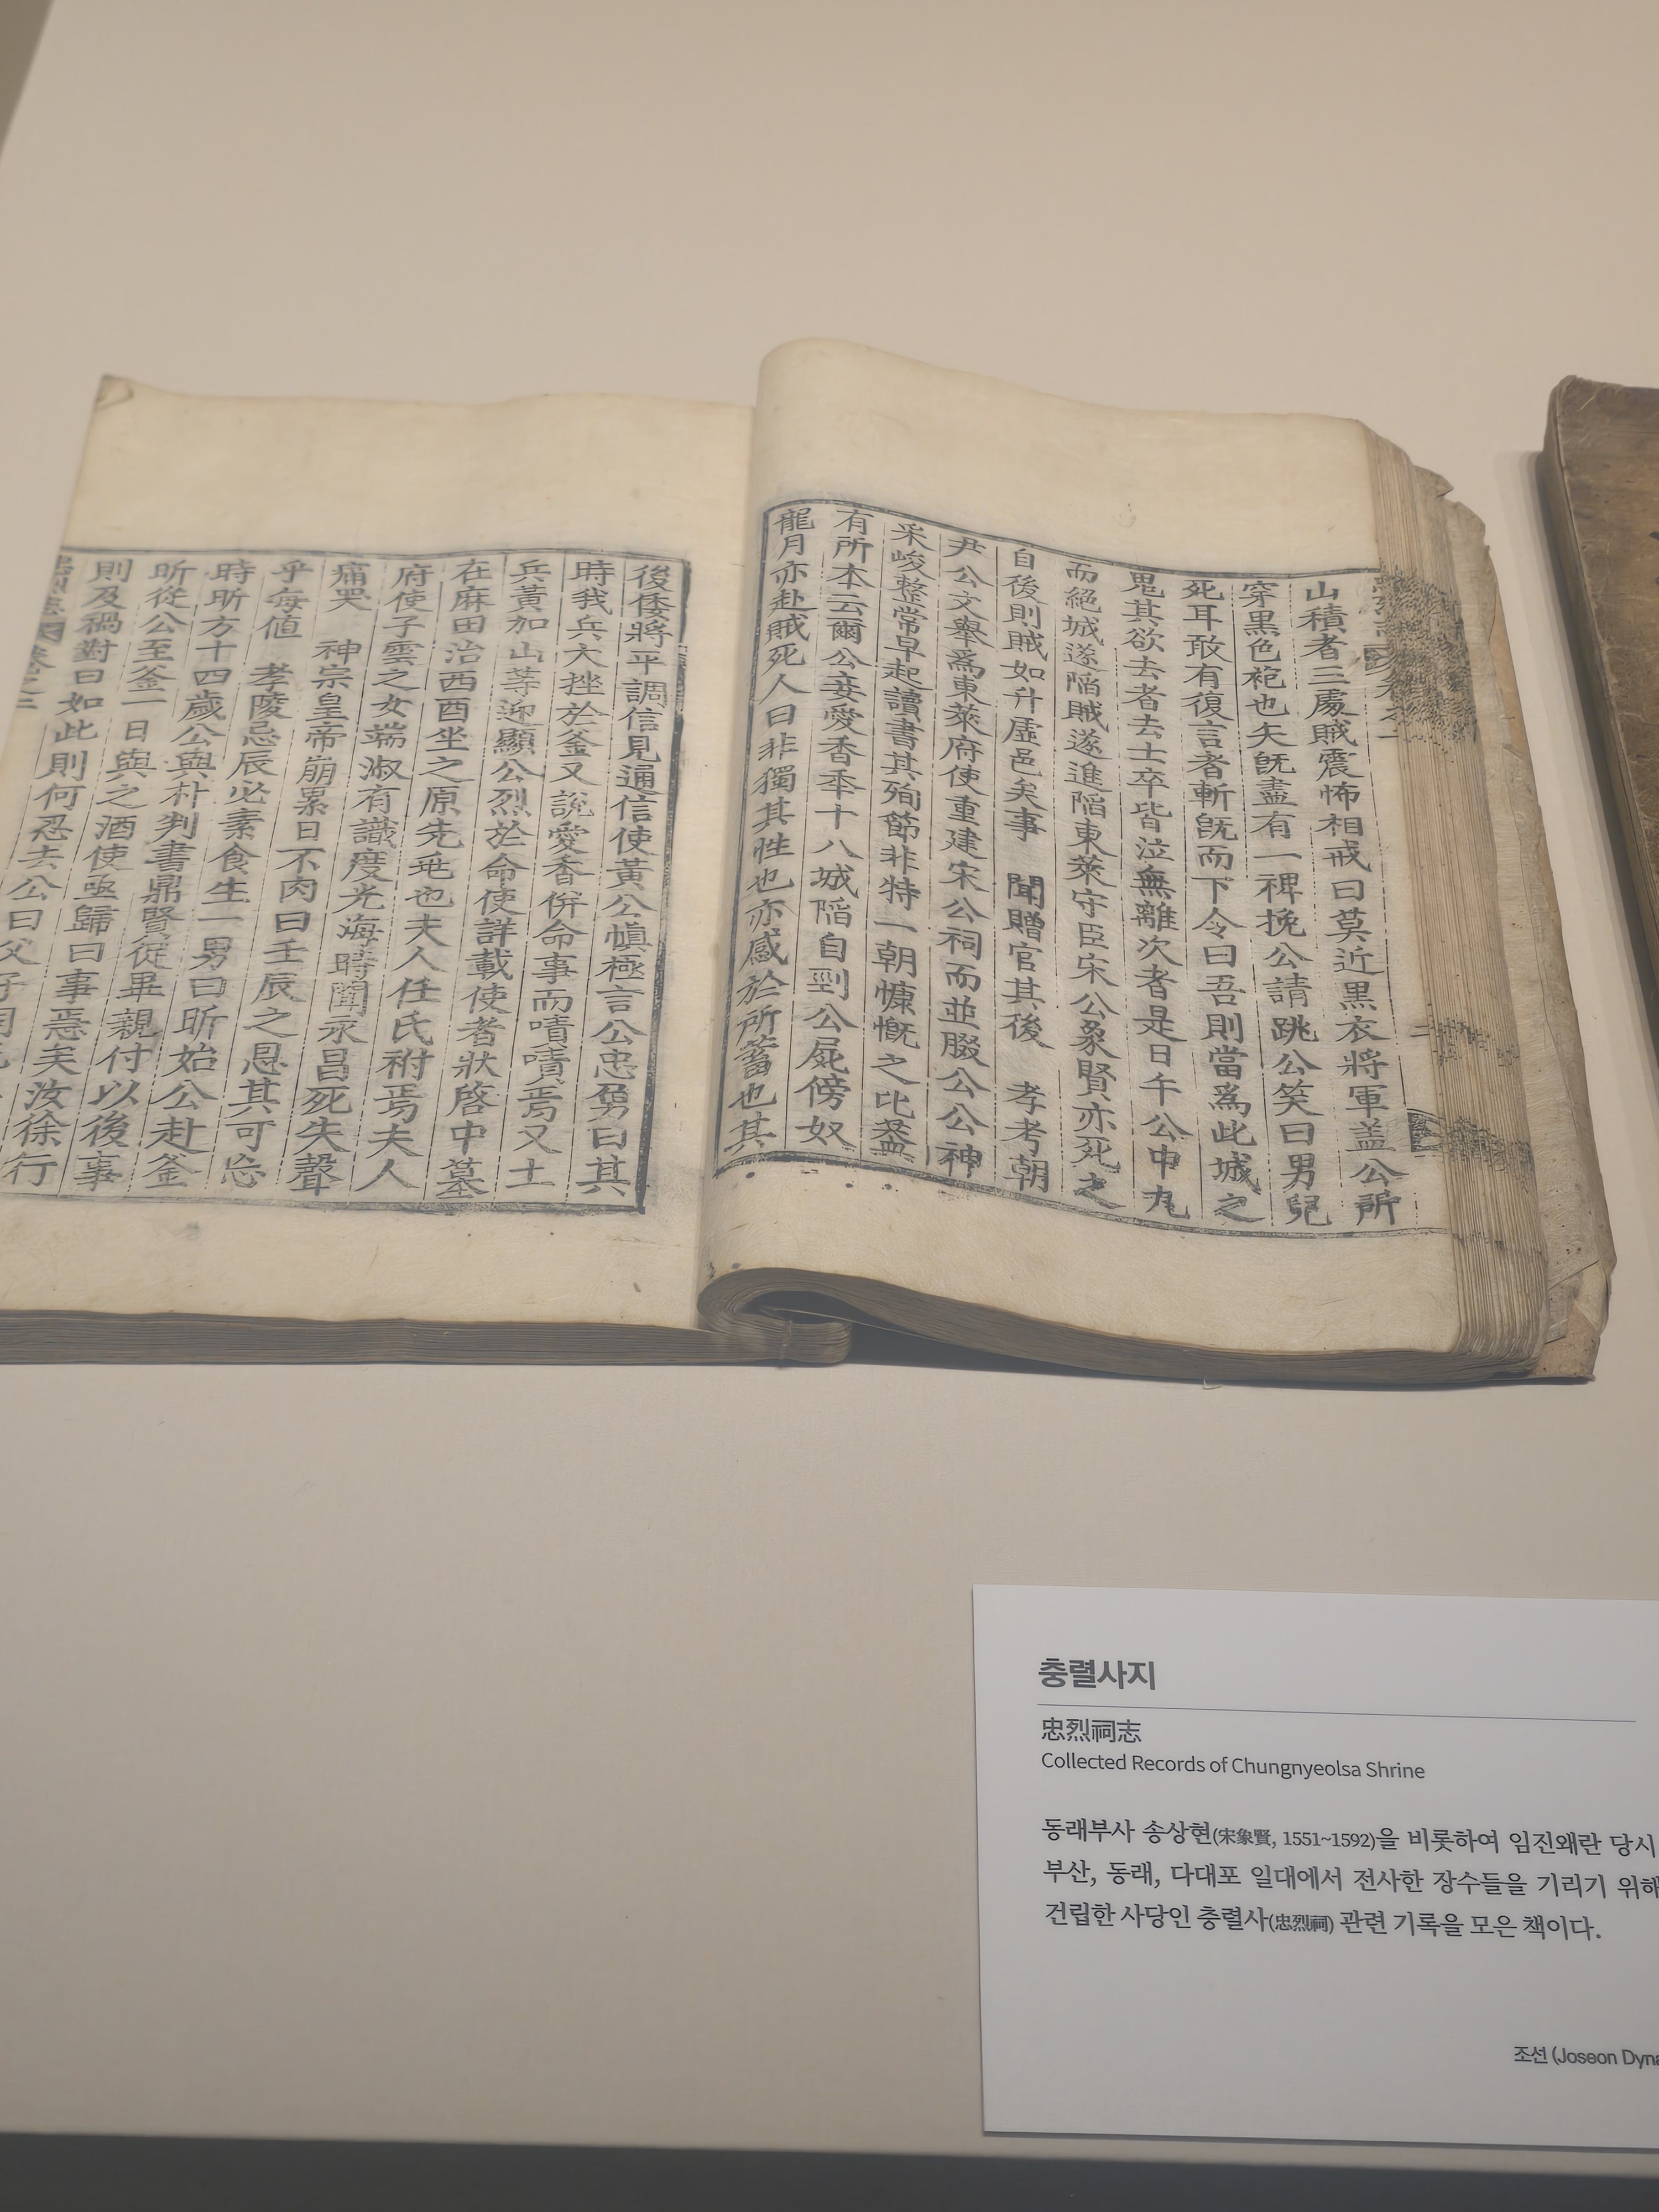 山積者三處賊震怖相戒曰莫近黑衣將軍盖公所
穿黑色袍也矢旣盡有一裨挽公請跳公笑曰男兒
死耳敢有復言者斬旣而下令曰吾則當爲此城之
鬼其欲去者去士卒皆泣無離次者是日午公中丸
而絕城遂陷賊遂進陷東萊守臣宋公象賢亦死之
自後則賊如升虛邑矣事 聞贈官其後 孝考朝
尹公文擧爲東萊府使重建宋公祠而並腏公公神
采峻整常早起讀書其殉節非特一朝慷慨之比盖
有所本云爾公妾愛香年十八城陷自剄公屍傍奴
龍月亦赴賊死人曰非獨其性也亦感於所蓄也其
後倭將平調信見通信使黃公愼極言公忠勇曰其
時我兵大挫於釜又說愛香倂命事而嘖嘖焉又士
兵黃加山等迎顯公烈於命使詳載使者狀啓中墓
在麻田治西酉坐之原先兆也夫人任氏祔焉夫人
府使子雲之女端淑有識度光海時聞永昌死失聲
痛哭 神宗皇帝崩累日不肉曰壬辰之恩其可忘
乎每値 孝陵忌辰必素食生一男曰昕始公赴釜
時昕方十四歲公與朴判書鼎賢從畢親付以後事
昕從公至釜一日與之酒使亟歸曰事急矣汝徐行
則及禍對曰如此則何忍去公曰父子同
충렬사지
忠烈祠志
Collected Records of Chungnyeolsa Shrine
동래부사 송상현(宋象賢, 1551~1592)을 비롯하여 임진왜란 당시
부산, 동래, 다대포 일대에서 전사한 장수들을 기리기 위해
건립한 사당인 충렬사(忠烈祠) 관련 기록을 모은 책이다.
조선 (Joseon Dyna